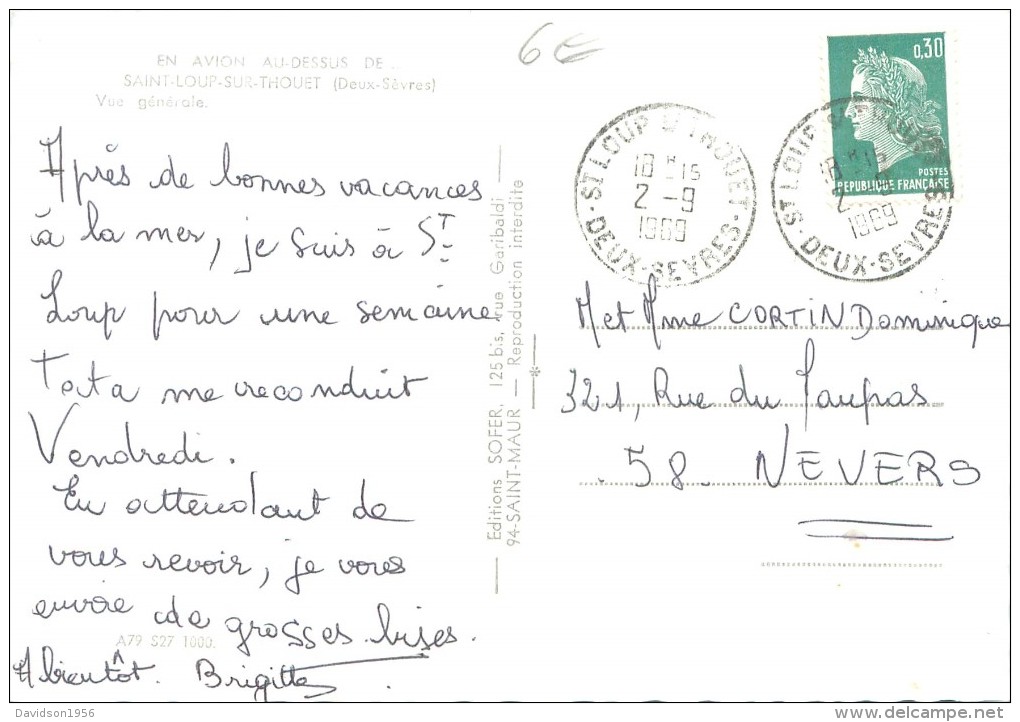 6€
EN AVION AU-DESSUS DE...
SAINT-LOUP-SUR-THOUET (Deux-Sèvres)
Vue générale.
Après de bonnes vacances
à la mer, je suis à ST
Loup pour une semaine
Tata me reconduit
Vendredi.
En attendant de
vous revoir, je vous
envoie de grosses bises.
A79 S27 1000.
A bientôt. Brigitte
Editions SOFER, 125 bis, rue Garibaldi
94-SAINT-MAUR — Reproduction interdite
ST LOUP S/ THOUET
18 H 15
2-9
1969
DEUX-SEVRES
ST LOUP S/ THOUET
18 H 15
2-9
1969
DEUX-SEVRES
0,30
POSTES
REPUBLIQUE FRANÇAISE
M et Mme CORTIN Dominique
321, Rue du
58. NEVERS
Davidson1956
delcampe.net